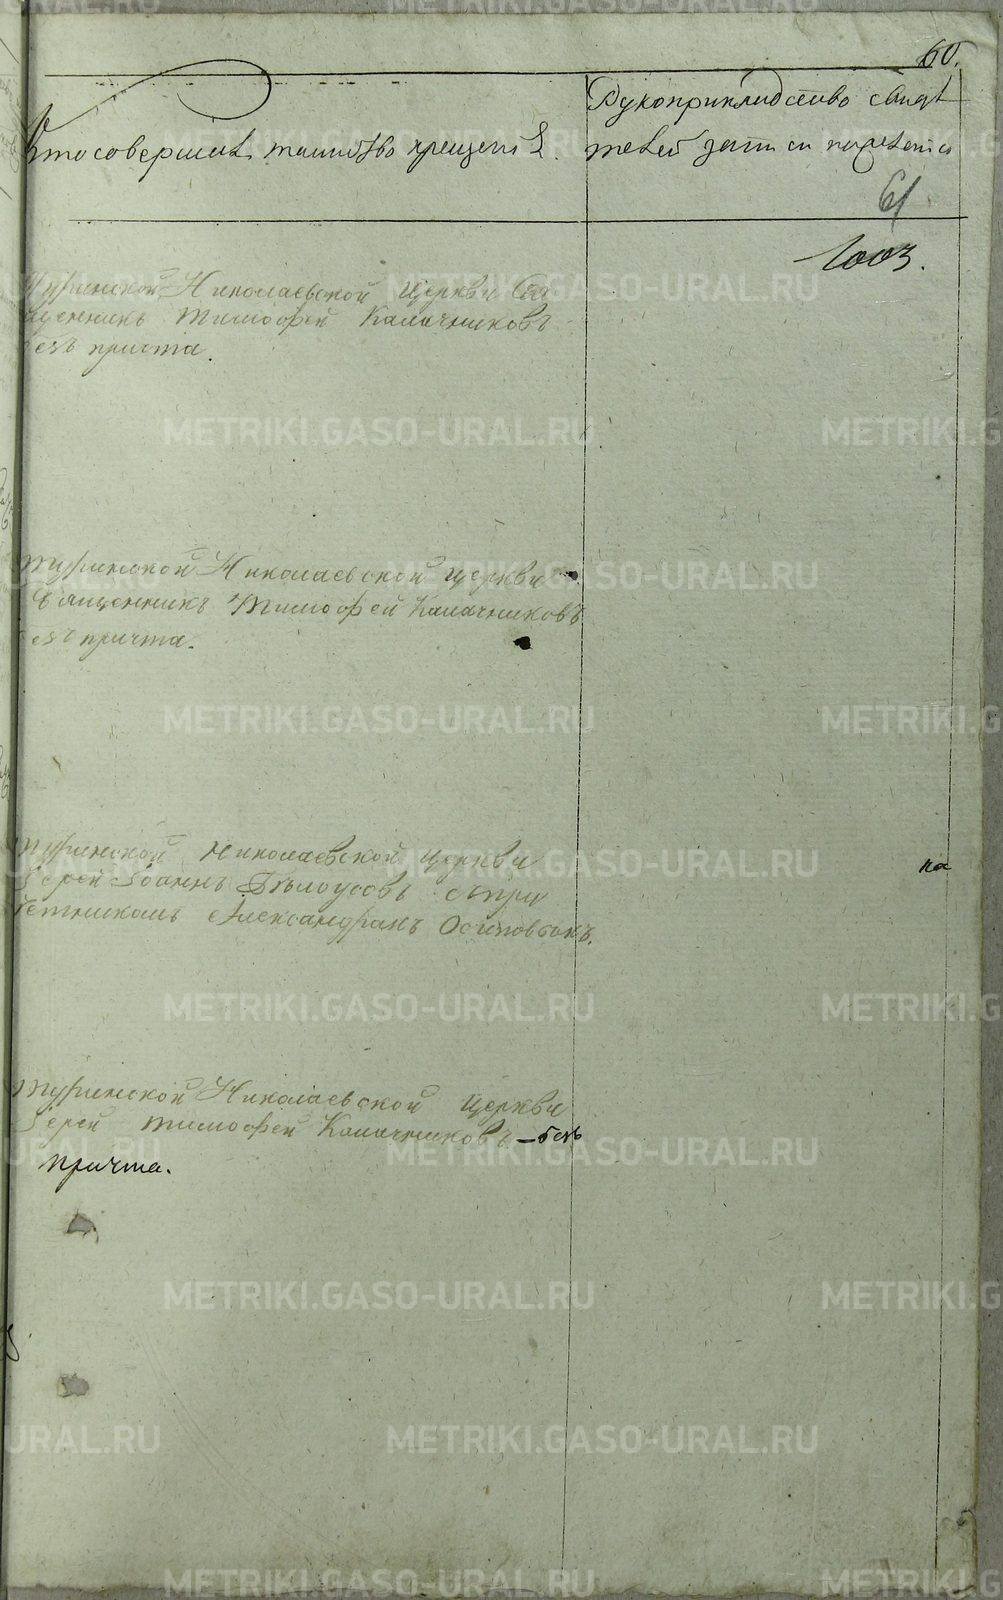 60.
Рукоприкладство свидѣ
Кто совершалъ таинство крещенія.
телей записи по желанію
61
1003.
Туринской Николаевской Церкви Свя
щенникъ Тимофей Калачниковъ
безъ причта.
Туринской Николаевской Церкви
Священникъ Тимофей Калачниковъ
безъ причта.
Туринской Николаевской Церкви
Іерей Іоаннъ Бѣлоусовъ с при
четникомъ Александромъ Осиповымъ.
на
Туринской Николаевской Церкви
Іерей Тимофей Калачниковъ – безъ
причта.